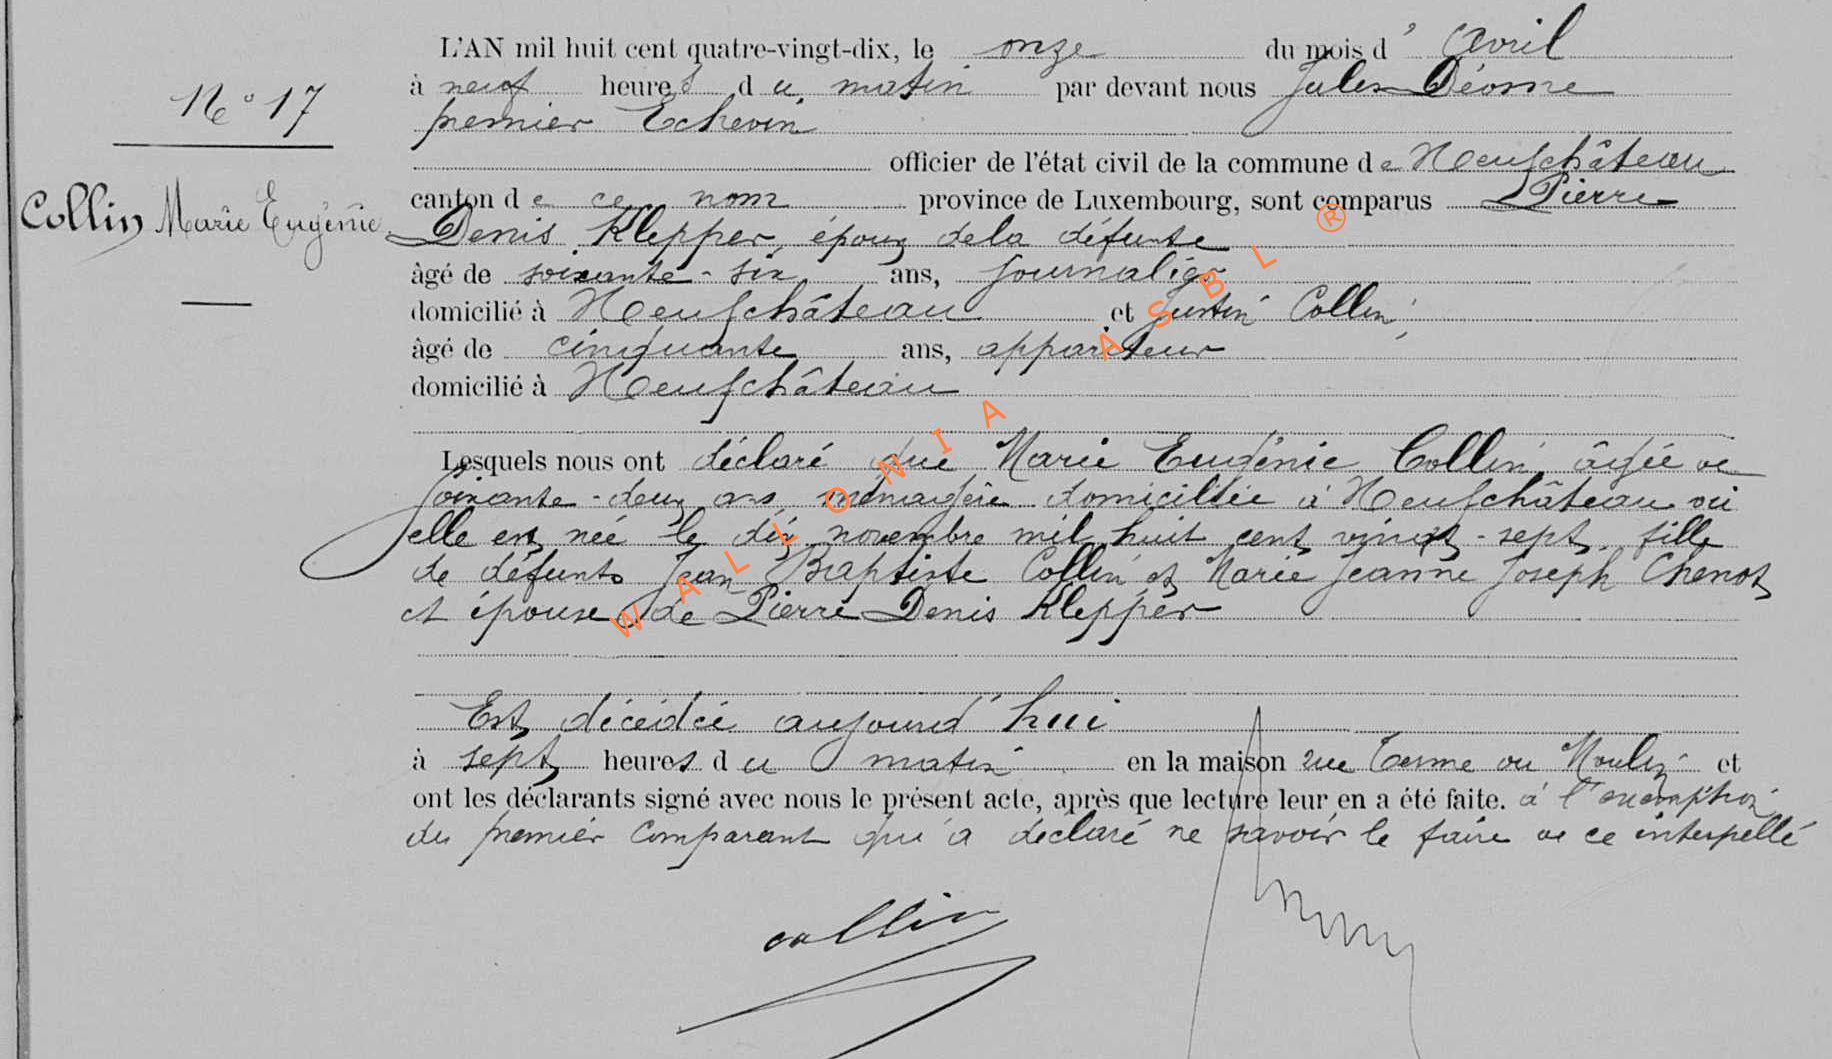 L'AN mil huit cent quatre-vingt-dix, le onze du mois d' Avril
N° 17
à neuf heures du matin par devant nous Jules Déome
premier Echevin
officier de l'état civil de la commune de Neufchâteau
Collin Marie Eugénie
canton de ce nom province de Luxembourg, sont comparus Pierre
Denis Klepper, époux de la défunte
âgé de soixante-six ans, journalier
domicilié à Neufchâteau et Justin Collin,
âgé de cinquante ans, appariteur
domicilié à Neufchâteau
Lesquels nous ont déclaré que Marie Eugénie Collin, âgée de
soixante-deux ans ménagère domiciliée à Neufchâteau où
elle est née le dix novembre mil huit cent vingt-sept, fille
de défunts Jean Baptiste Collin et Marie Jeanne Joseph Chenot
et épouse de Pierre Denis Klepper
Est décédée aujourd'hui
à sept heures du matin en la maison rue Terme du Moulin et
ont les déclarants signé avec nous le présent acte, après que lecture leur en a été faite. à l'exception
du premier comparant qui a déclaré ne savoir le faire de ce interpellé
collin
WALLONIA ASBL ®